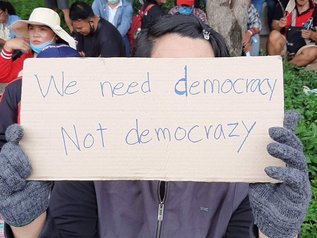 We need democracy
Not democrazy